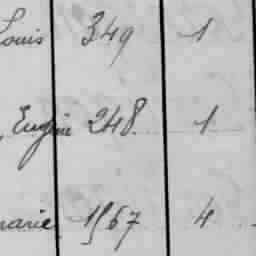 Louis 349 1
Eugénie 248 1
marie 1567 4